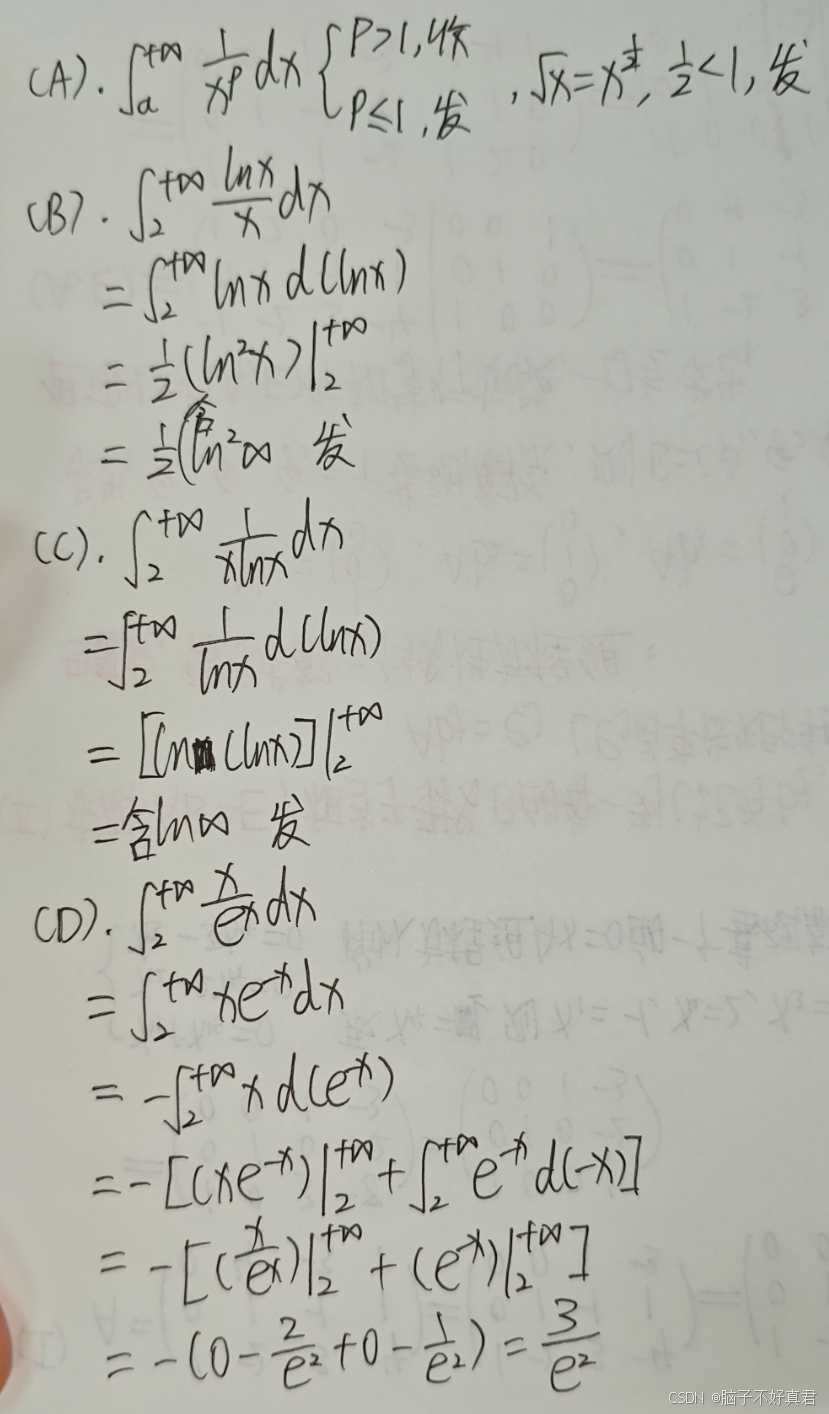 (A). ∫ₐ^{+∞} 1/x^p dx { P>1,收 ; P≤1,发 , √x=x^{1/2}, 1/2<1, 发
(B). ∫₂^{+∞} lnx/x dx
= ∫₂^{+∞} lnx d(lnx)
= 1/2(ln²x)|₂^{+∞}
= 1/2(含ln²∞ 发
(C). ∫₂^{+∞} 1/(xlnx) dx
= ∫₂^{+∞} 1/lnx d(lnx)
= [ln(lnx)]|₂^{+∞}
= 含ln∞ 发
(D). ∫₂^{+∞} x/e^x dx
= ∫₂^{+∞} xe^{-x}dx
= -∫₂^{+∞} x d(e^{-x})
= -[(xe^{-x})|₂^{+∞} + ∫₂^{+∞} e^{-x} d(-x)]
= -[(x/e^x)|₂^{+∞} + (e^{-x})|₂^{+∞}]
= -(0 - 2/e² + 0 - 1/e²) = 3/e²
CSDN @脑子不好真君